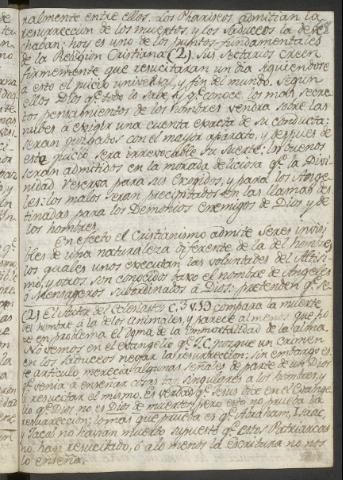 realmente entre ellos. Los Phariseos admitian la
resurreccion de los muertos y los Saduceos la dese-
chaban: hoy es uno de los puntos fundamentales
de la Religion Cristiana (2). Sus Sectarios Creen
firmemente que resucitaran un dia siguiendose
a esto el juicio universal y fin del mundo. Segun
ellos Dios qe. todo lo sabe, y Conoce los mas secre-
tos pensamientos de los hombres vendra sobre las
nubes a exigir una cuenta exacta de su conducta;
seran juzgados con el mayor aparato, y despues de
este juicio sera irrevocable su suerte: los buenos
seran admitidos en la morada deliciosa qe. la Divi-
nidad reserva para sus Escogidos, y para los Ange-
les: los malos seran precipitados en las llamas des-
tinadas para los Demonios enemigos de Dios y de
los hombres.
En efecto el Cristianismo admite seres invisi-
bles de una naturaleza diferente de la del hombre,
los quales unos executan las voluntades del Altisi-
mo, y otros son conocidos baxo el nombre de Angeles
o Mensageros subordinados a Dios: pretenden qe. se
(2) El Autor del Eclesiastes c. 3 v. 19 compara la muerte
del hombre a la de los animales, y parece al menos que po-
ne en problema el Dogma de la Immortalidad de la alma.
No vemos en el evangelio qe. J.C. juzgue un crimen
en los Saduceos negar la resurreccion; sin embargo es-
te articulo merecia algunas señales de parte de un Dios
qe. venia a enseñar cosas tan singulares a los hombres, y
a resucitar el mismo. Es verdad qe. Jesus dice en el Evange-
lio qe. Dios no es Dios de muertos; pero esto no prueba la
resurreccion; lo mas que prueba es qe. Abraham, Isaac,
y Jacob no havian muerto supuesto qe. estos Patriarcas
no han resucitado, o a lo menos la escritura no nos
lo enseña.